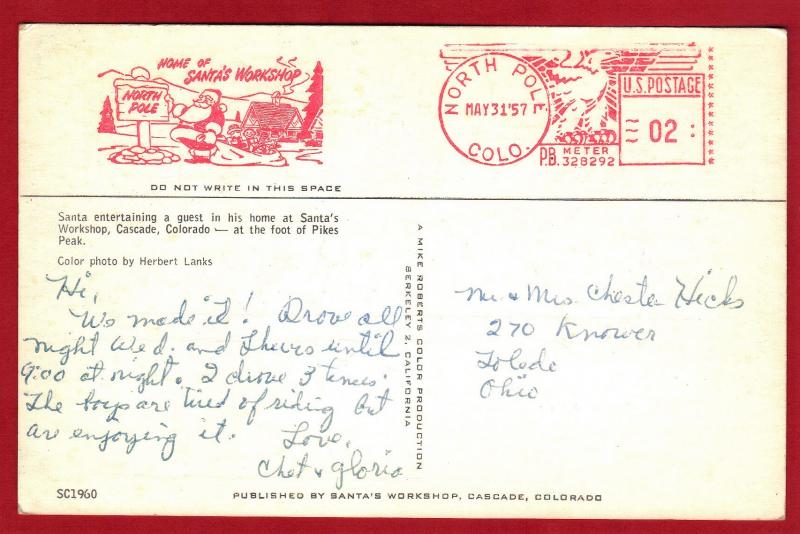 HOME OF
SANTA'S WORKSHOP
NORTH
POLE
NORTH POLE
MAY 31 '57
COLO.
U.S. POSTAGE
02
P.B. METER
328292
DO NOT WRITE IN THIS SPACE
Santa entertaining a guest in his home at Santa's
Workshop, Cascade, Colorado — at the foot of Pikes
Peak.
Color photo by Herbert Lanks
Hi,
We made it! Drove all
night Wed. and Thurs until
9:00 at night. I drove 3 times.
The boys are tired of riding but
are enjoying it.
Love,
Chet & Gloria
A MIKE ROBERTS COLOR PRODUCTION
BERKELEY 2, CALIFORNIA
Mr. & Mrs. Chester Hicks
270 Knower
Toledo
Ohio
SC1960
PUBLISHED BY SANTA'S WORKSHOP, CASCADE, COLORADO